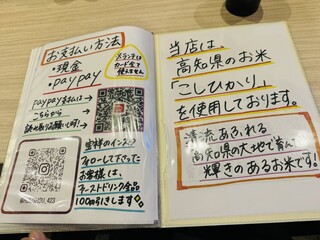 お支払い方法
・現金
・paypay
メランチは
カード全て
使えません
paypay支払は→
こちらから
読み取りお願いします!
当店のインスタ
フォローして下さった
お客様は、
ファーストドリンク全品
100円引きします
当店は、
高知県のお米
「こしひかり」
を使用しております。
清流あふれる
高知県の大地で育んだ
輝きのあるお米です!